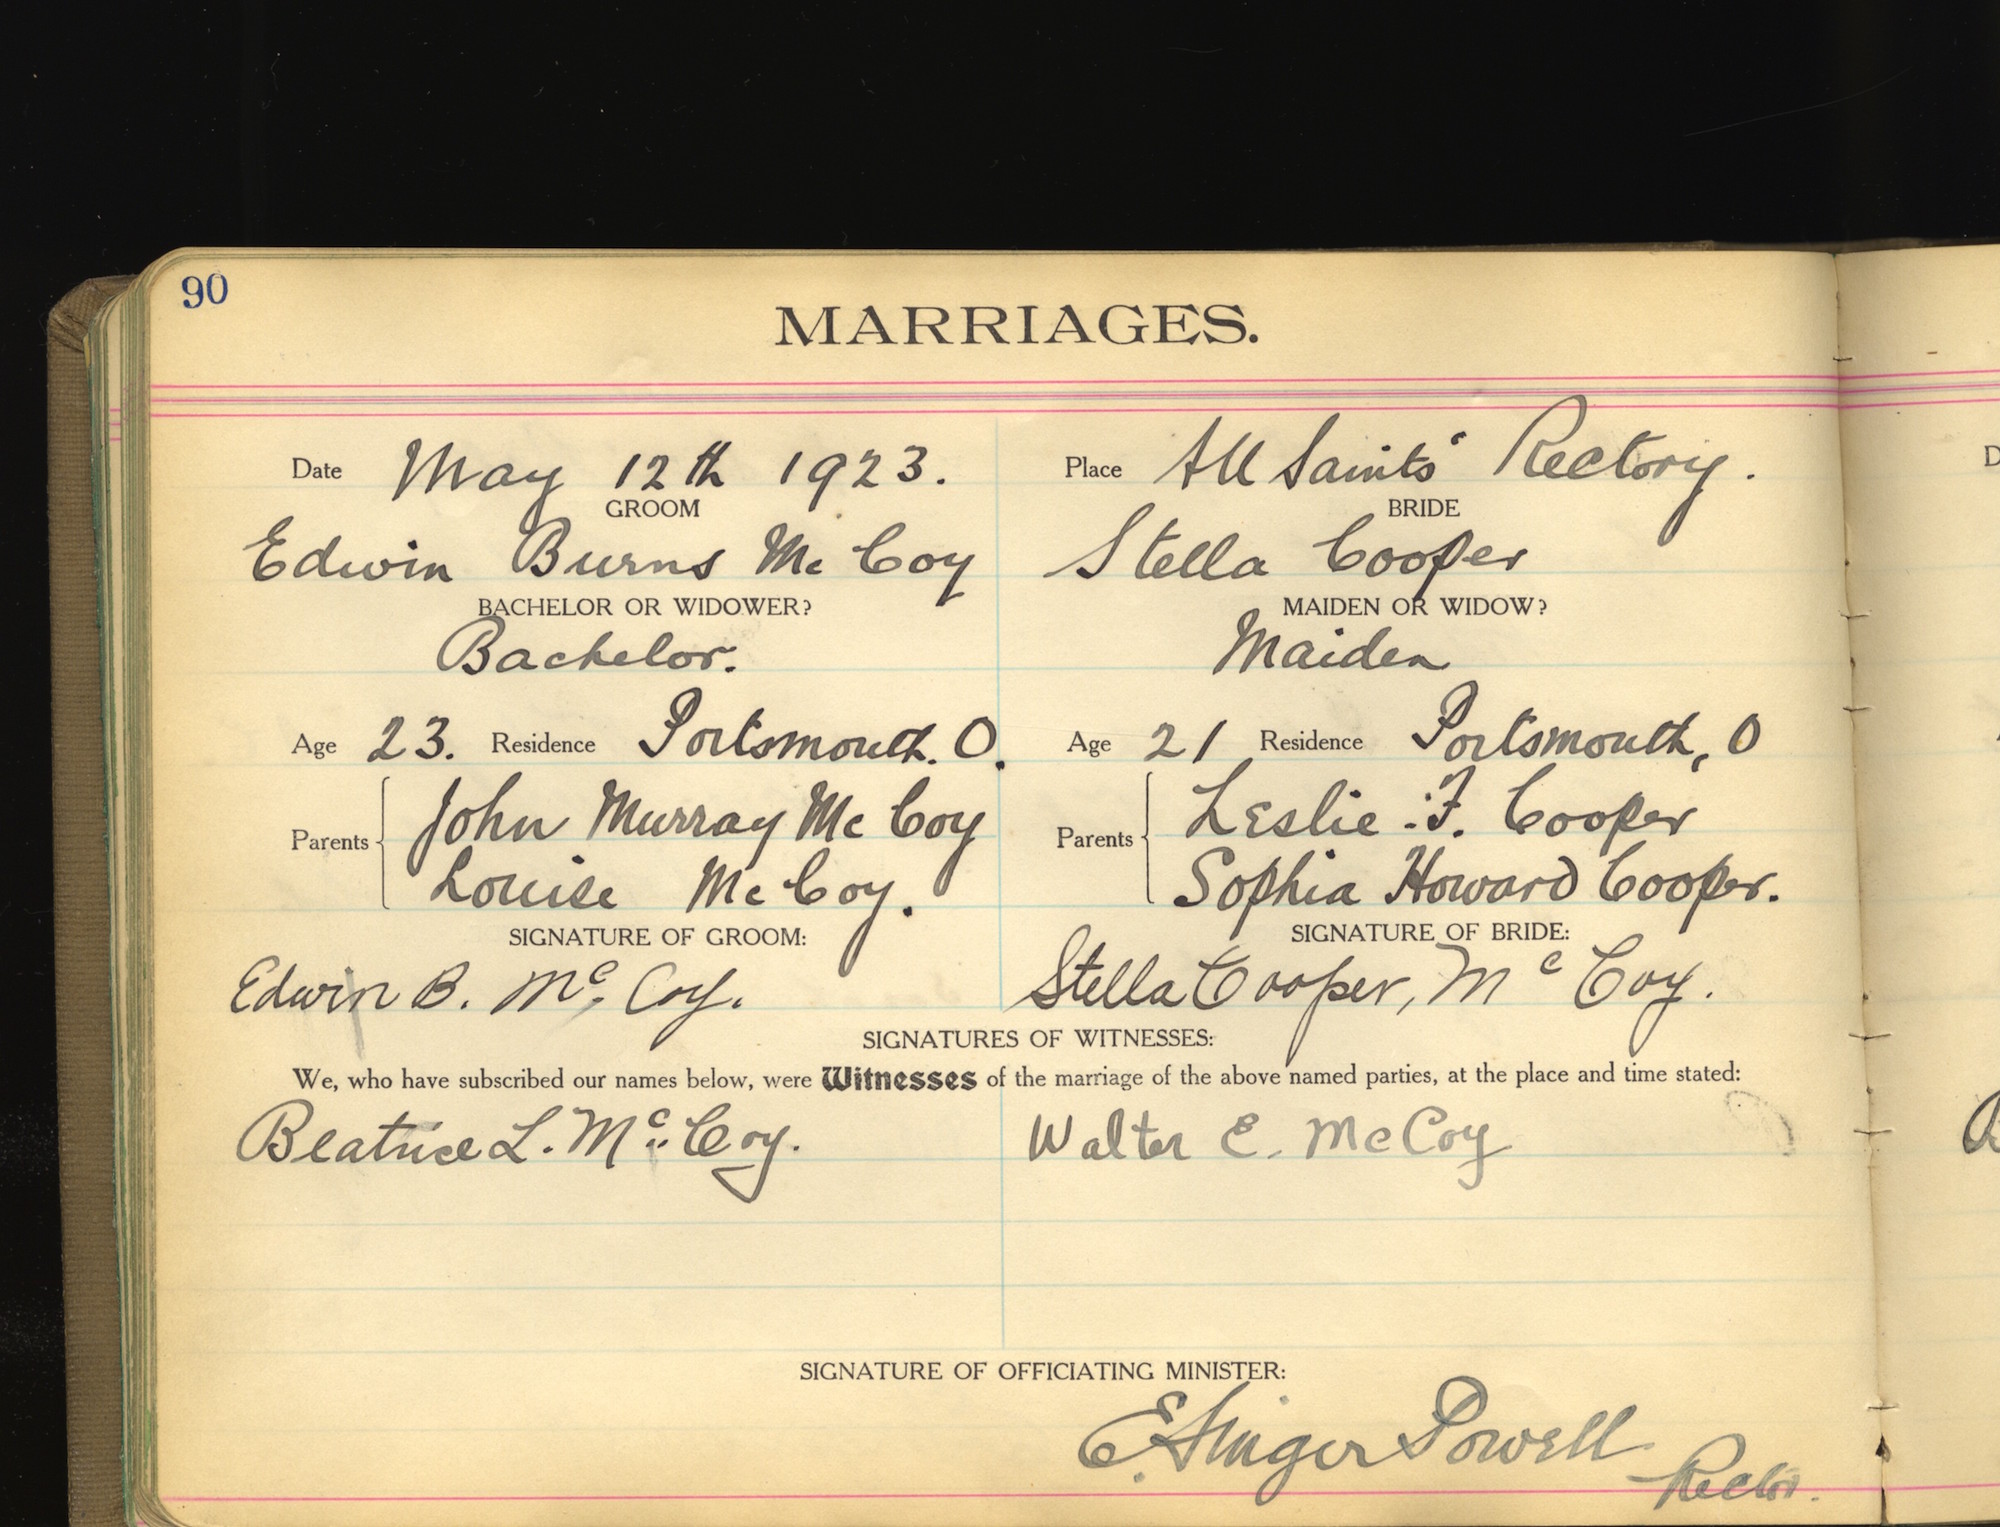 90
MARRIAGES.
Date May 12th 1923. Place All Saints' Rectory.
GROOM BRIDE
Edwin Burns Mc Coy Stella Cooper
BACHELOR OR WIDOWER? MAIDEN OR WIDOW?
Bachelor. Maiden
Age 23. Residence Portsmouth. O. Age 21 Residence Portsmouth, O
Parents John Murray Mc Coy Parents Leslie F. Cooper
Louise Mc Coy. Sophia Howard Cooper.
SIGNATURE OF GROOM: SIGNATURE OF BRIDE:
Edwin B. Mc Coy. Stella Cooper, Mc Coy.
SIGNATURES OF WITNESSES:
We, who have subscribed our names below, were Witnesses of the marriage of the above named parties, at the place and time stated:
Beatrice L. Mc Coy. Walter E. McCoy
SIGNATURE OF OFFICIATING MINISTER:
E. Singer Powell
Rector.